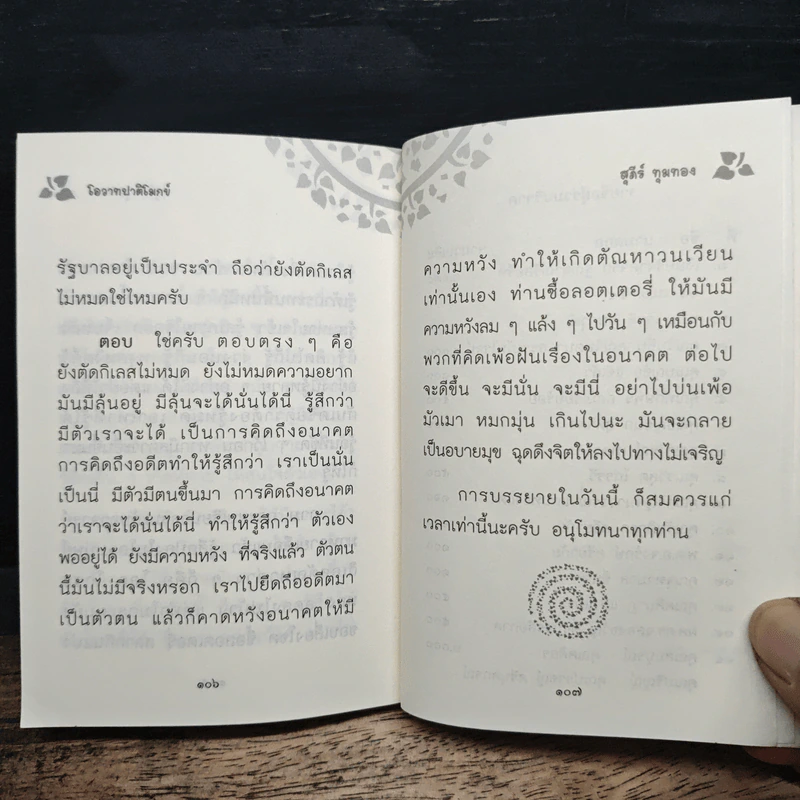 โอวาทปาติโมกข์
รัฐบาลอยู่เป็นประจำ ถือว่ายังตัดกิเลส
ไม่หมดใช่ไหมครับ
ตอบ ใช่ครับ ตอบตรง ๆ คือ
ยังตัดกิเลสไม่หมด ยังไม่หมดความอยาก
มันมีลุ้นอยู่ มีลุ้นจะได้นั่นได้นี่ รู้สึกว่า
มีตัวเราจะได้ เป็นการคิดถึงอนาคต
การคิดถึงอดีตทำให้รู้สึกว่า เราเป็นนั่น
เป็นนี่ มีตัวมีตนขึ้นมา การคิดถึงอนาคต
ว่าเราจะได้นั่นได้นี่ ทำให้รู้สึกว่า ตัวเอง
พออยู่ได้ ยังมีความหวัง ที่จริงแล้ว ตัวตน
นี้มันไม่มีจริงหรอก เราไปยึดถืออดีตมา
เป็นตัวตน แล้วก็คาดหวังอนาคตให้มี
๑๐๖
สุภีร์ ทุมทอง
ความหวัง ทำให้เกิดตัณหาวนเวียน
เท่านั้นเอง ท่านซื้อลอตเตอรี่ ให้มันมี
ความหวังลม ๆ แล้ง ๆ ไปวัน ๆ เหมือนกับ
พวกที่คิดเพ้อฝันเรื่องในอนาคต ต่อไป
จะดีขึ้น จะมีนั่น จะมีนี่ อย่าไปบ่นเพ้อ
มัวเมา หมกมุ่น เกินไปนะ มันจะกลาย
เป็นอบายมุข ฉุดดึงจิตให้ลงไปทางไม่เจริญ
การบรรยายในวันนี้ ก็สมควรแก่
เวลาเท่านี้นะครับ อนุโมทนาทุกท่าน
๑๐๗